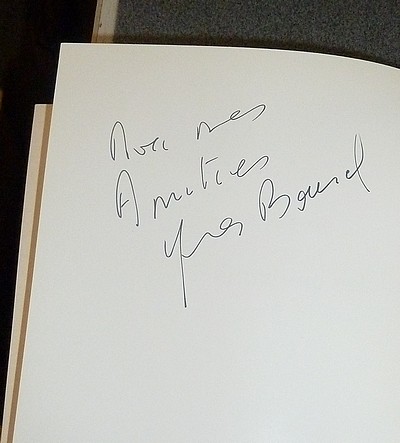 Avec mes
Amitiés
Yves